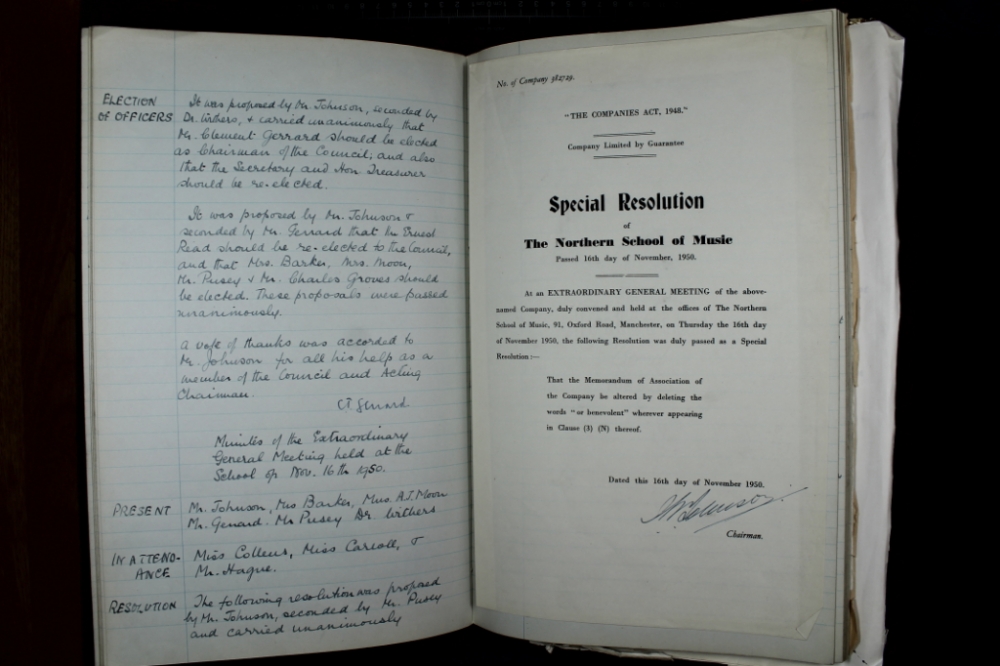 ELECTION
OF OFFICERS
It was proposed by Mr. Johnson, seconded by
Dr. Withers, & carried unanimously that
Mr. Clement Gerrard should be elected
as Chairman of the Council; and also
that the Secretary and Hon. Treasurer
should be re-elected.
It was proposed by Mr. Johnson &
seconded by Mr. Gerrard that Mr Ernest
Read should be re-elected to the Council,
and that Mrs. Barker, Mrs. Moon,
Mr. Pusey & Mr. Charles Groves should
be elected. These proposals were passed
unanimously.
A vote of thanks was accorded to
Mr. Johnson for all his help as a
member of the Council and Acting
Chairman.
Minutes of the Extraordinary
General Meeting held at the
School on Nov. 16th 1950.
PRESENT
Mr. Johnson, Mrs Barker, Mrs. A.J. Moon
Mr. Gerrard. Mr Pusey Dr. Withers
IN ATTEND-
ANCE
Miss Collens, Miss Carroll, &
Mr. Hague.
RESOLUTION
The following resolution was proposed
by Mr. Johnson, seconded by Mr. Pusey
and carried unanimously
No. of Company 382729.
"THE COMPANIES ACT, 1948."
Company Limited by Guarantee
Special Resolution
of
The Northern School of Music
Passed 16th day of November, 1950.
At an EXTRAORDINARY GENERAL MEETING of the above-
named Company, duly convened and held at the offices of The Northern
School of Music, 91, Oxford Road, Manchester, on Thursday the 16th day
of November 1950, the following Resolution was duly passed as a Special
Resolution :—
That the Memorandum of Association of
the Company be altered by deleting the
words "or benevolent" wherever appearing
in Clause (3) (N) thereof.
Dated this 16th day of November 1950.
Chairman.